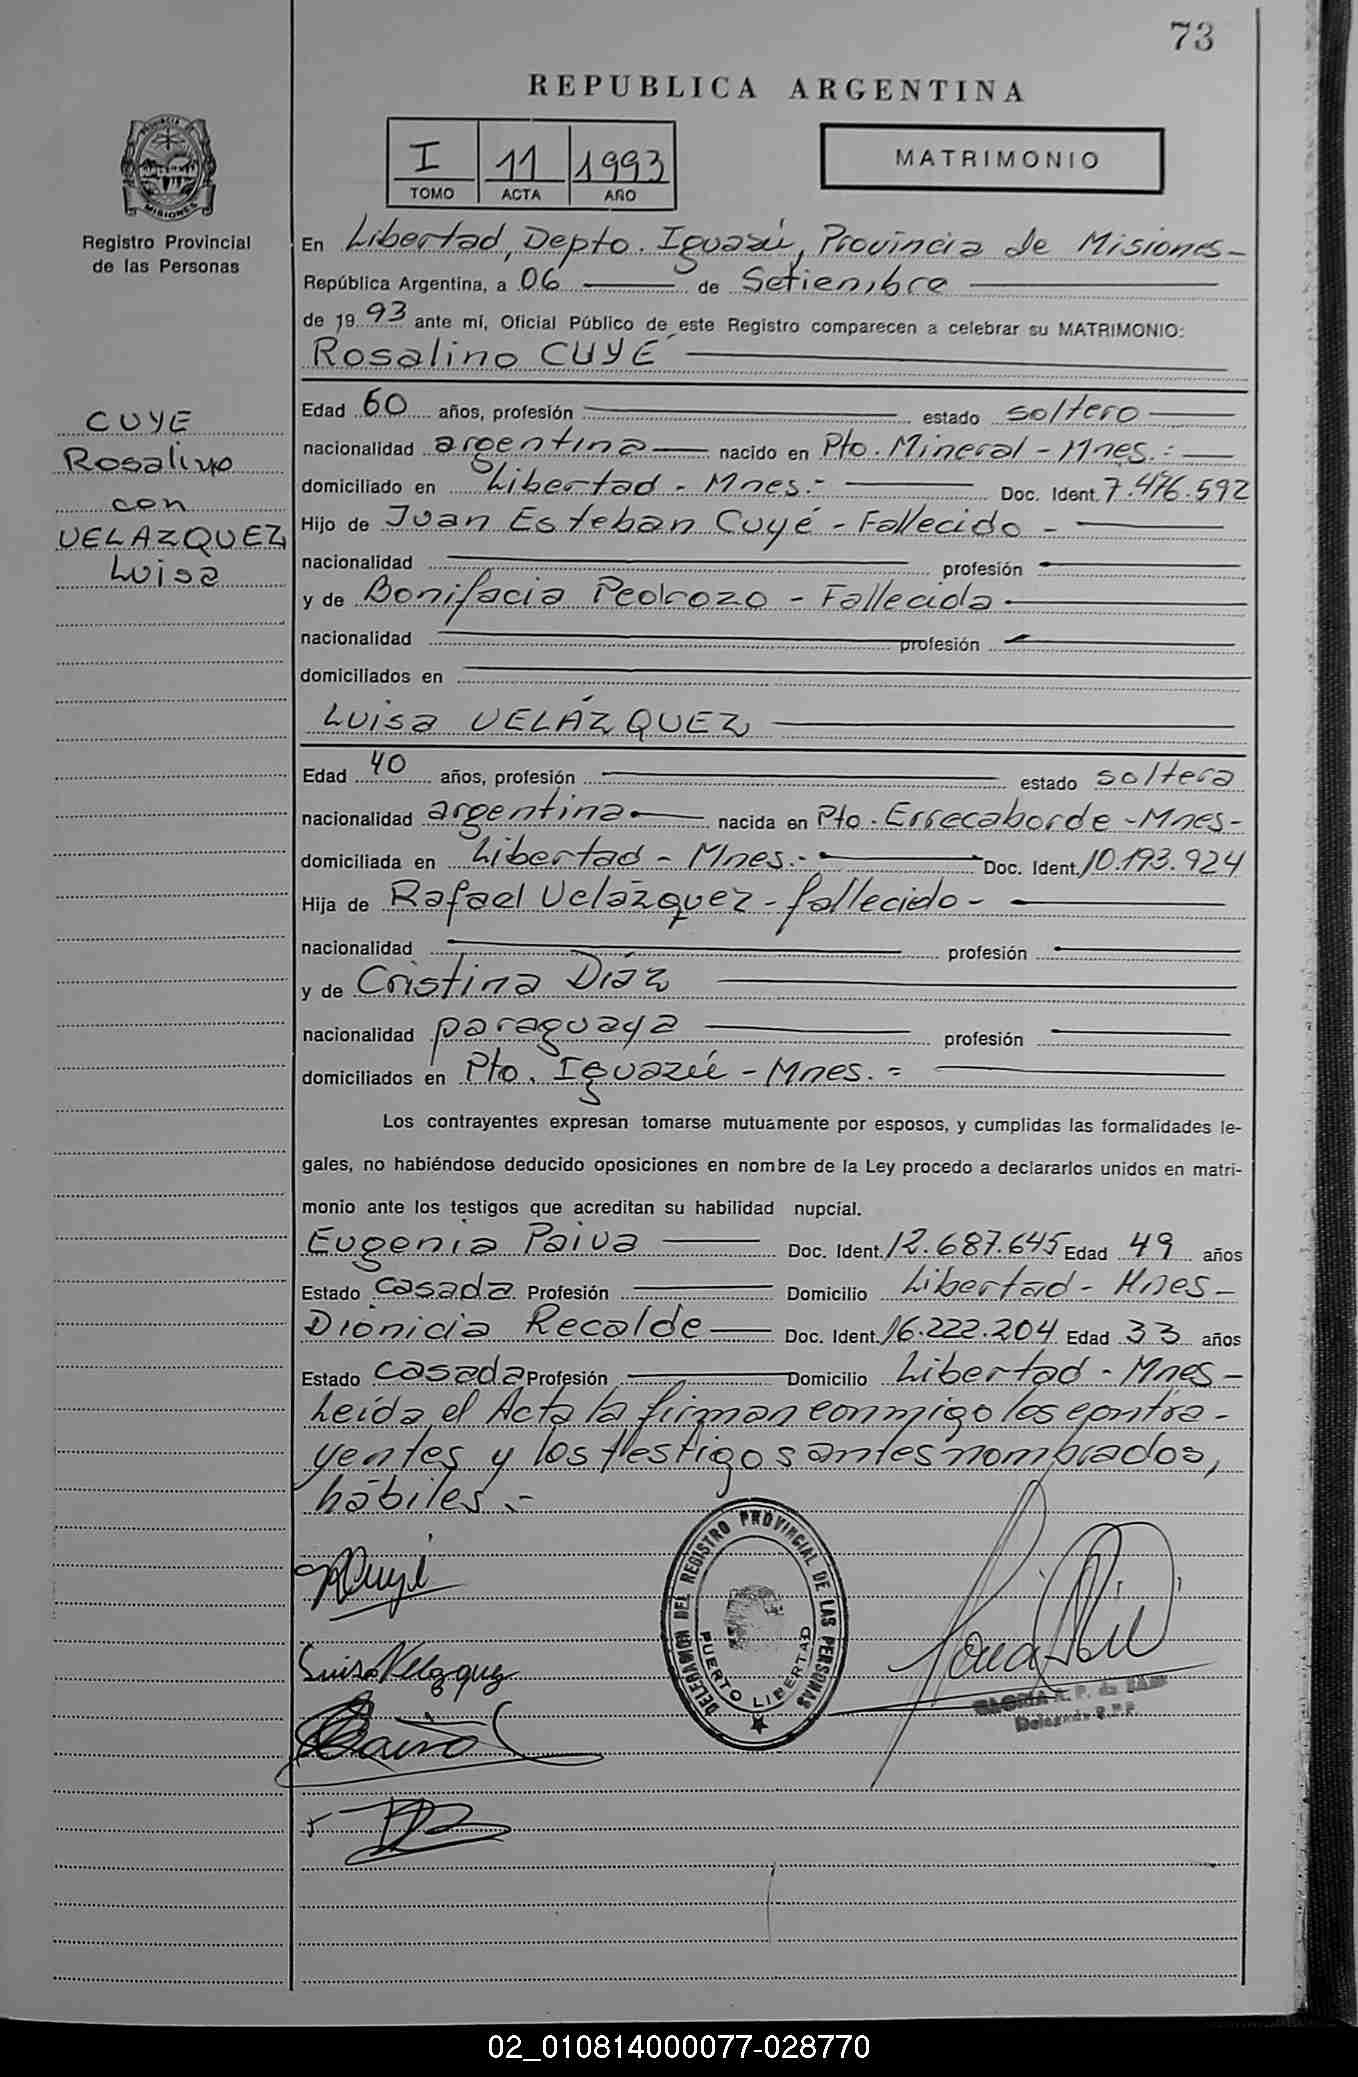 73
REPUBLICA ARGENTINA
I 11 1993
TOMO ACTA AÑO
MATRIMONIO
PROVINCIA DE MISIONES
Registro Provincial
de las Personas
CUYE
Rosalino
con
VELAZQUEZ
Luisa
En Libertad, Depto. Iguazú, Provincia de Misiones-
República Argentina, a 06 de Setiembre
de 1993 ante mí, Oficial Público de este Registro comparecen a celebrar su MATRIMONIO:
Rosalino CUYÉ
Edad 60 años, profesión estado soltero
nacionalidad argentina nacido en Pto. Mineral - Mnes.-
domiciliado en Libertad - Mnes.- Doc. Ident. 7.476.592
Hijo de Juan Esteban Cuyé - Fallecido -
nacionalidad profesión
y de Bonifacia Pedrozo - Fallecida
nacionalidad profesión
domiciliados en
Luisa VELÁZQUEZ
Edad 40 años, profesión estado soltera
nacionalidad argentina nacida en Pto. Errecaborde -Mnes-
domiciliada en Libertad - Mnes.- Doc. Ident. 10.193.924
Hija de Rafael Velázquez - fallecido -
nacionalidad profesión
y de Cristina Díaz
nacionalidad paraguaya profesión
domiciliados en Pto. Iguazú - Mnes.-
Los contrayentes expresan tomarse mutuamente por esposos, y cumplidas las formalidades le-
gales, no habiéndose deducido oposiciones en nombre de la Ley procedo a declararlos unidos en matri-
monio ante los testigos que acreditan su habilidad nupcial.
Eugenia Paiva Doc. Ident. 12.687.645 Edad 49 años
Estado casada Profesión Domicilio Libertad - Mnes-
Dionicia Recalde Doc. Ident. 16.222.204 Edad 33 años
Estado casada Profesión Domicilio Libertad - Mnes-
Leída el Acta la firman conmigo los contra-
yentes y los testigos antes nombrados,
hábiles.-
RCuyé
Luisa Velazquez
DELEGACION DEL REGISTRO PROVINCIAL DE LAS PERSONAS
PUERTO LIBERTAD
GLORIA A. P. de
Delegada R.P.P.
02_010814000077-028770